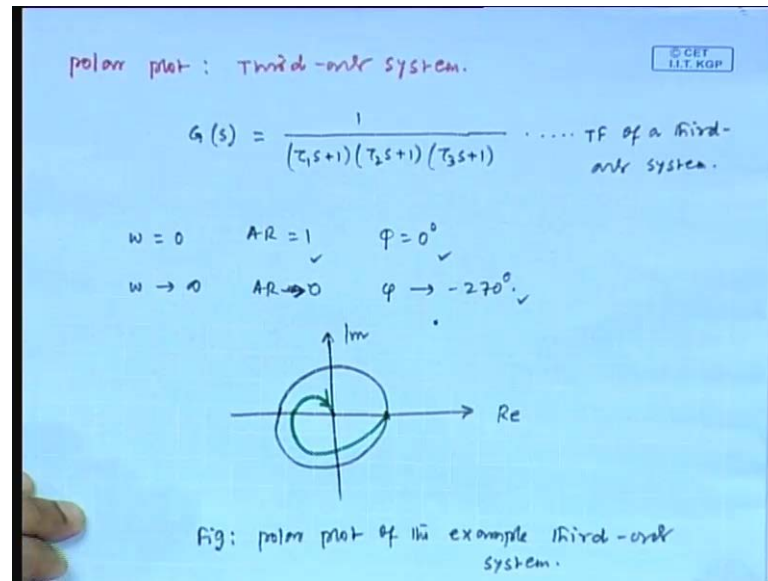 polar plot : Third-order system.
© CET
I.I.T. KGP
G(s) = 1 / (τ₁s+1)(τ₂s+1)(τ₃s+1) ..... TF of a third-
order system.
ω = 0 AR = 1 φ = 0°
ω → ∞ AR → 0 φ → -270°.
Im
Re
Fig: polar plot of the example third-order
system.